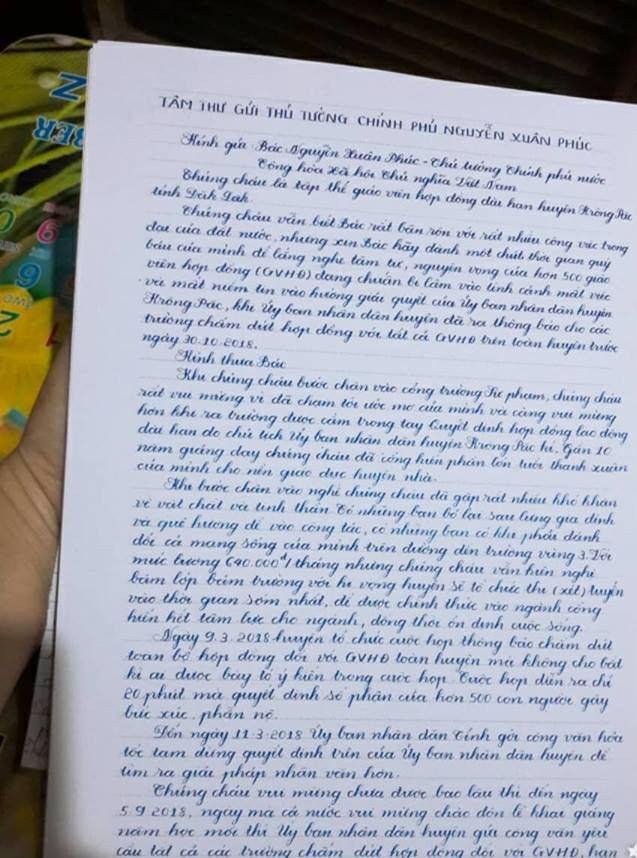 TÂM THƯ GỬI THỦ TƯỚNG CHÍNH PHỦ NGUYỄN XUÂN PHÚC
Kính gửi: Bác Nguyễn Xuân Phúc - Thủ tướng Chính phủ nước
Cộng hòa Xã hội Chủ nghĩa Việt Nam
Chúng cháu là tập thể giáo viên hợp đồng dài hạn huyện Krông Pắc
tỉnh Đắk Lắk
Chúng cháu vẫn biết Bác rất bận rộn với rất nhiều công việc trọng
đại của đất nước, nhưng xin Bác hãy dành một chút thời gian quý
báu của mình để lắng nghe tâm tư, nguyện vọng của hơn 500 giáo
viên hợp đồng (GVHĐ) đang chuẩn bị lâm vào tình cảnh mất việc
và mất niềm tin vào hướng giải quyết của Ủy ban nhân dân huyện
Krông Pắc, khi Ủy ban nhân dân huyện đã ra thông báo cho các
trường chấm dứt hợp đồng với tất cả GVHĐ trên toàn huyện trước
ngày 30.10.2018.
Kính thưa Bác
Khi chúng cháu bước chân vào cổng trường Sư phạm, chúng cháu
rất vui mừng vì đã chạm tới ước mơ của mình và càng vui mừng
hơn khi ra trường được cầm trong tay Quyết định hợp đồng lao động
dài hạn do chủ tịch Ủy ban nhân dân huyện Krông Pắc kí. Gần 10
năm giảng dạy chúng cháu đã cống hiến phần lớn tuổi thanh xuân
của mình cho nền giáo dục huyện nhà.
Khi bước chân vào nghề chúng cháu đã gặp rất nhiều khó khăn
về vật chất và tinh thần. Có những bạn bỏ lại sau lưng gia đình
và quê hương để vào công tác, có những bạn có khi phải đánh
đổi cả mạng sống của mình trên đường đến trường vùng 3. Với
mức lương 690.000đ/tháng nhưng chúng cháu vẫn kiên nghị
bám lớp bám trường với hi vọng huyện sẽ tổ chức thi (xét) tuyển
vào thời gian sớm nhất, để được chính thức vào ngành cống
hiến hết tâm lực cho ngành, đồng thời ổn định cuộc sống.
Ngày 9.3.2018 huyện tổ chức cuộc họp thông báo chấm dứt
toàn bộ hợp đồng đối với GVHĐ toàn huyện mà không cho bất
kì ai được bày tỏ ý kiến trong cuộc họp. Cuộc họp diễn ra chỉ
20 phút mà quyết định số phận của hơn 500 con người gây
bức xúc, phẫn nộ.
Đến ngày 11.3.2018 Ủy ban nhân dân tỉnh gửi công văn hỏa
tốc tạm dừng quyết định trên của Ủy ban nhân dân huyện để
tìm ra giải pháp nhân văn hơn.
Chúng cháu vui mừng chưa được bao lâu thì đến ngày
5.9.2018, ngày mà cả nước vui mừng chào đón lễ khai giảng
năm học mới thì Ủy ban nhân dân huyện gửi công văn yêu
cầu tất cả các trường chấm dứt hợp đồng đối với GVHĐ, hạn